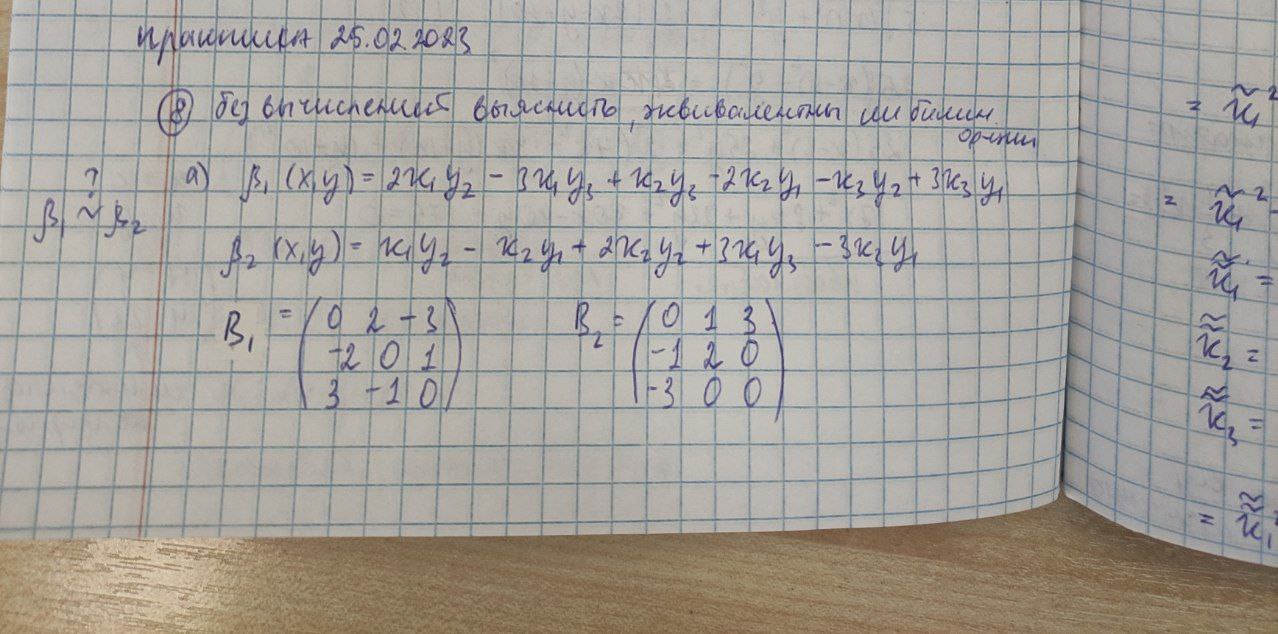 практика 25.02.2023
⑧ без вычислений выяснить, эквивалентны ли билин.
ф-ции
? а) β₁ (x,y) = 2x₁y₂ - 3x₁y₃ + x₂y₃ - 2x₂y₁ - x₃y₂ + 3x₃y₁
β₁ ~ β₂
β₂ (x,y) = x₁y₂ - x₂y₁ + 2x₂y₂ + 3x₁y₃ - 3x₃y₁
B₁ = (0 2 -3 B₂ = (0 1 3
-2 0 1 -1 2 0
3 -1 0) -3 0 0)
= x̃₁²
= x̃₁² -
x̃̃₁ =
x̃̃₂ =
x̃̃₃ =
= x̃̃₁